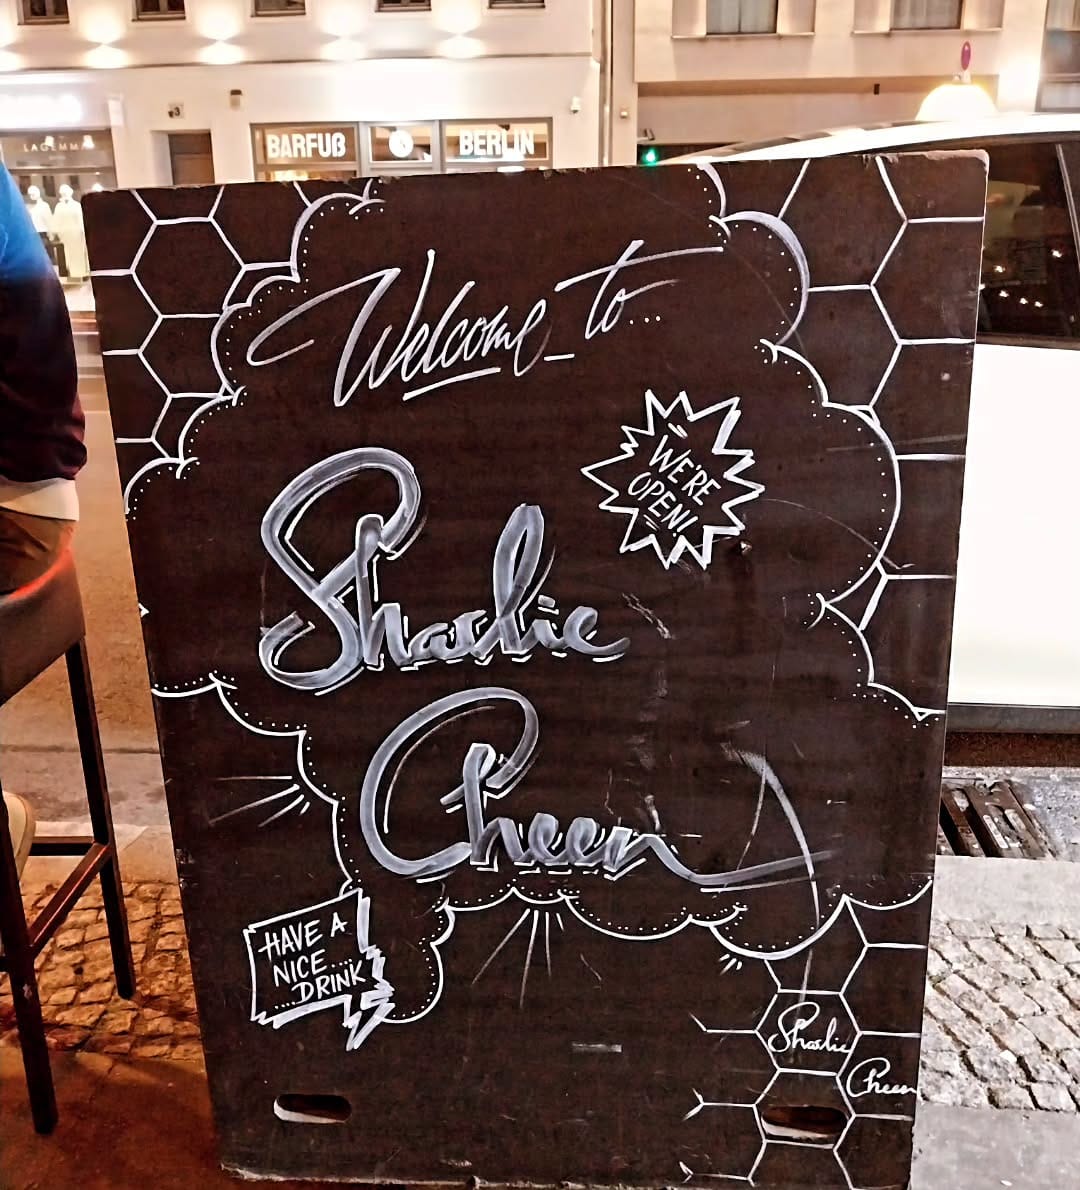 LAGEMMA
BARFUß BERLIN
Welcome to...
WE'RE
OPEN!
Sharlie
Cheen
HAVE A
NICE...
...DRINK
Sharlie
Cheen